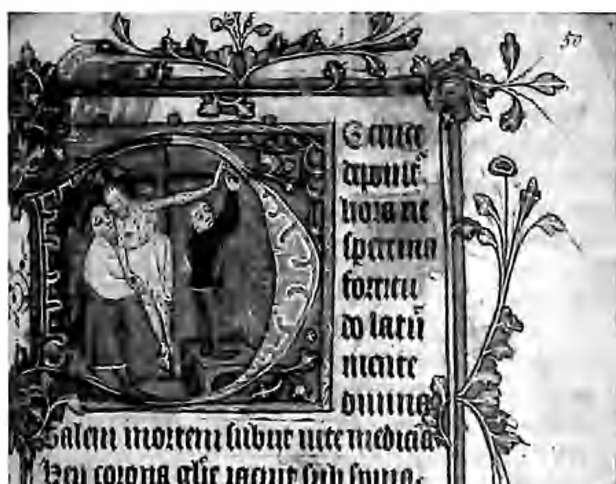 50
DE cruce
deponit᷑
hora ve
spertina
fortitu
do latu᷑
mente
divina
Talem mortem subiit vite medicina
Heu corona glie iacuit supina.